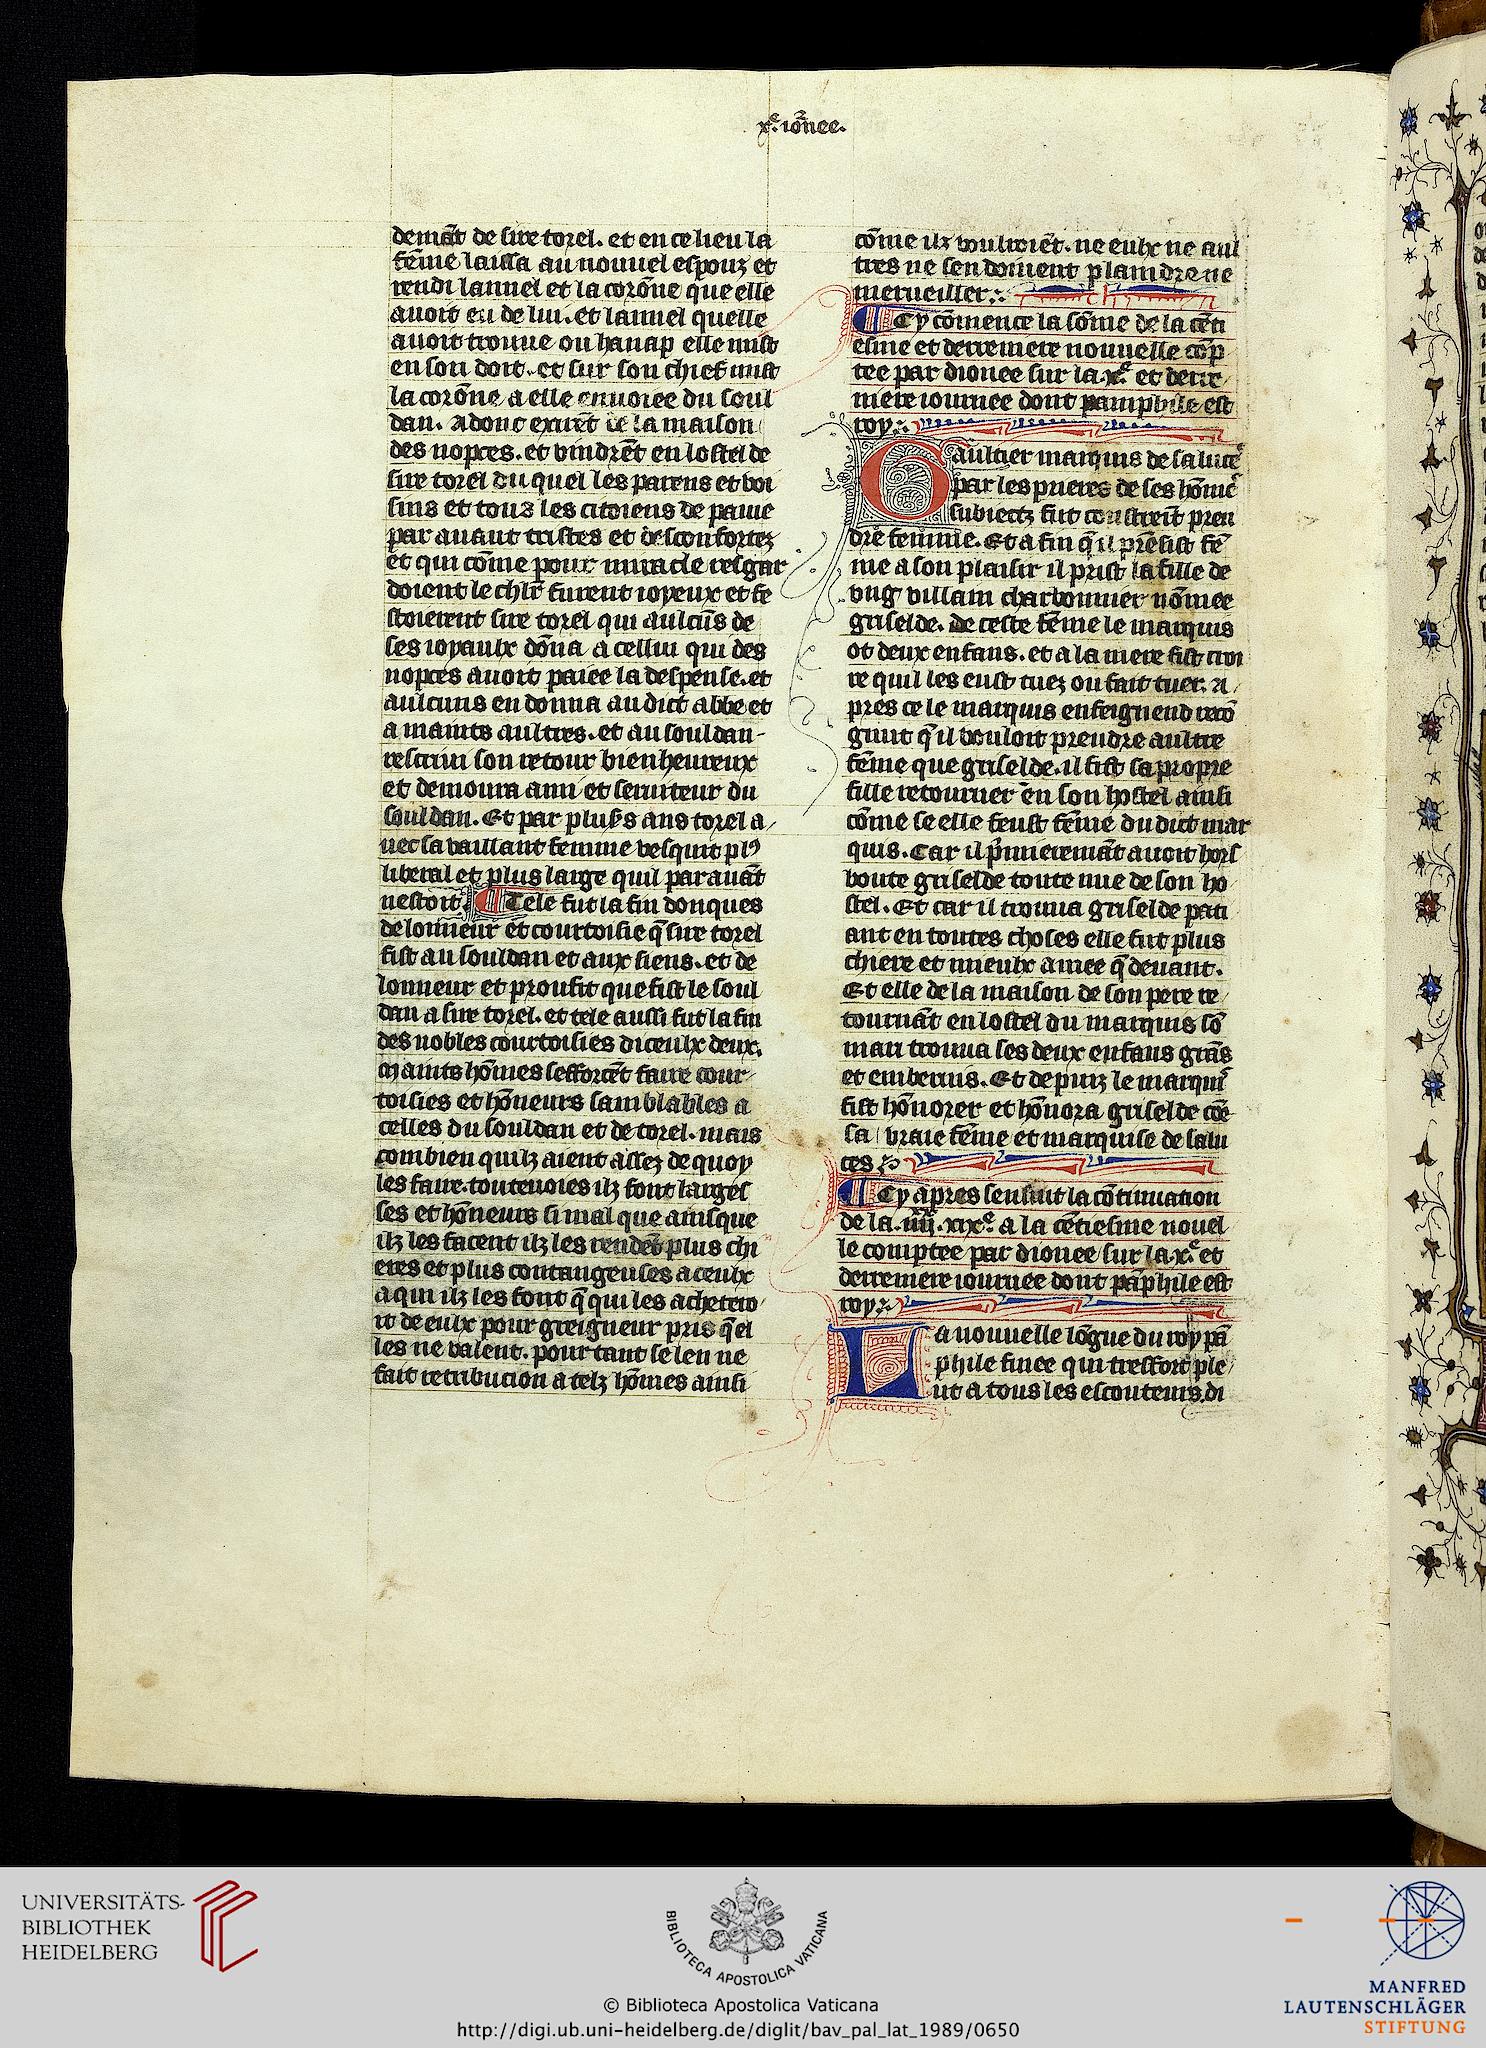 xe. iornee.
demāt de sire torel. et en ce lieu la
fēme laissa au nouuel espouz et
rendi lannel et la corōne que elle
auoit eu de lui. et lannel quelle
auoit trouue ou hanap elle mist
en son doit. et sur son chief mist
la corōne a elle enuoiee du soul
dan. Adonc exirēt de la maison
des nopces. et vindrēt en lostel de
sire torel du quel les parens et voi
sins et tous les citoiens de pauie
par auant tristes et desconfortez
et qui cōme pour miracle resgar
doient le chlr̄ furent ioyeux et fe
stoierent sire torel qui aulcūs de
ses ioyaulx dōna a cellui qui des
nopces auoit paiee la despense. et
aulcuns en donna au dict abbe et
a maints aultres. et au souldan
rescriui son retour bienheureux
et demoura ami et seruiteur du
souldan. Et par plusrs ans torel a
uec sa vaillant femme vesquit plꝰ
liberal et plus large quil par auāt
nestoit. Tele fut la fin donques
de lonneur et courtoisie q̄ sire torel
fist au souldan et aux siens. et de
lonneur et proufit que fist le soul
dan a sire torel. et tele aussi fut la fin
des nobles courtoisies diceulx deux.
Maints hōmes sefforcēt faire cour
toisies et hōneurs samblables a
celles du souldan et de torel. mais
combien quilz aient assez de quoy
les faire. toutenoies ilz font larges
ses et hōneurs si mal que ainsque
ilz les facent ilz les rendēt plus chi
eres et plus coutangeuses a ceulx
a qui ilz les font q̄ qui les acheteroi
it de eulx pour greigneur pris q̄ el
les ne valent. pour tant se len ne
fait retribucion a telz hōmes ainsi
cōme ilz vouldroiēt. ne eulx ne aul
tres ne sen doiuent plaindre ne
merueiller.
Cy cōmence la sōme de la cēti
esme et derreniere nouuelle cōp
tee par dionee sur la .xe. et derre
niere iournee dont pamphile est
roy.
Gaultier marquis de saluce
par les prieres de ses hōmes
subiectz fut constreīt pren
dre femme. Et a fin q̄ il prēsist fē
me a son plaisir il prist la fille de
vng villain charbonnier nōmee
griselde. de ceste fēme le marquis
ot deux enfans. et a la mere fist croi
re quil les eust tuez ou fait tuer. A
pres ce le marquis enfeignend recō
gnut q̄ il vouloit prendre aultre
fēme que griselde. il fist sa propre
fille retourner en son hostel ainsi
cōme se elle feust fēme du dict mar
quis. Car il p̄mieremāt auoit hors
boute griselde toute nue de son ho
stel. Et car il trouua griselde pati
ant en toutes choses elle fut plus
chiere et mieulx amee q̄ deuant.
Et elle de la maison de son pere re
tournāt en lostel du marquis sō
mari trouua ses deux enfans grās
et embernis. Et depuiz le marquis
fist hōnorer et hōnora griselde cōe
sa vraie fēme et marquise de salu
ces
Cy apres sensuit la cōtinuation
de la .iiii.xx xixe. a la cētiesme nouel
le comptee par dionee sur la .xe. et
derreniere iournee dont pāphile est
roy.
La nouuelle lōgue du roy pā
phile finee qui tresfort ple
ut a tous les escouteurs. di
UNIVERSITÄTS-
BIBLIOTHEK
HEIDELBERG
BIBLIOTECA APOSTOLICA VATICANA
© Biblioteca Apostolica Vaticana
http://digi.ub.uni-heidelberg.de/diglit/bav_pal_lat_1989/0650
MANFRED
LAUTENSCHLÄGER
STIFTUNG